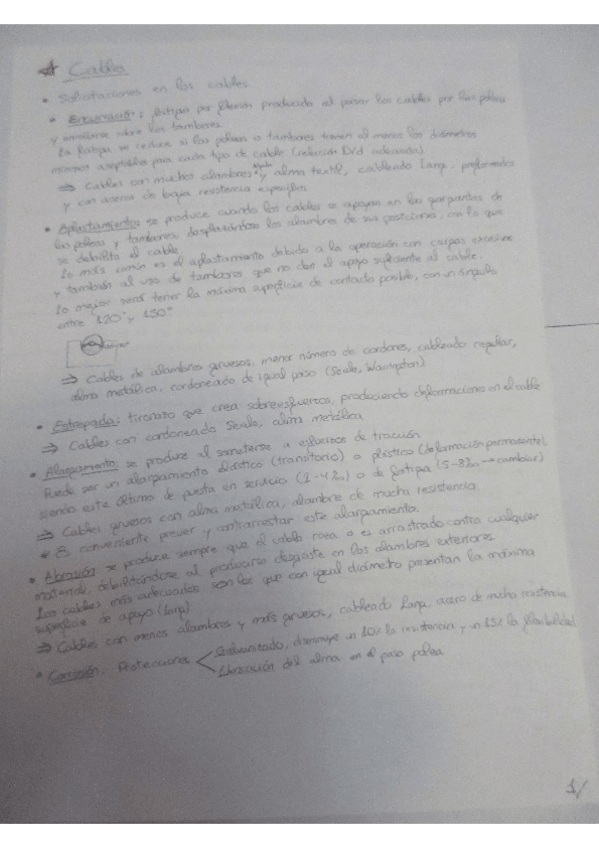 ☆ Cables
• Solicitaciones en los cables.
• Enrollamiento: fatiga por flexión producida al pasar los cables por las poleas
y enrollarse sobre los tambores.
La fatiga se reduce si las poleas o tambores tienen al menos los diámetros
mínimos aceptables para cada tipo de cable (relación D/d adecuada)
⇒ Cables con muchos alambres y alma textil, cableado Lang, preformados
y con aceros de baja resistencia específica
• Aplastamiento: se produce cuando los cables se apoyan en las gargantas de
las poleas y tambores, desplazándose los alambres de sus posiciones, con lo que
se debilita el cable.
Lo más común es el aplastamiento debido a la operación con cargas excesivas
y también al uso de tambores que no dan el apoyo suficiente al cable.
Lo mejor será tener la máxima superficie de contacto posible, con un ángulo
entre 120° y 150°
⇒ Cables de alambres gruesos, menor número de cordones, cableado regular,
alma metálica, cordoneado de igual paso (Seale, Warrington)
• Estrepada: tironazo que crea sobreesfuerzos, produciendo deformaciones en el cable
⇒ Cables con cordoneado Seale, alma metálica
• Alargamiento: se produce al someterse a esfuerzos de tracción
Puede ser un alargamiento elástico (transitorio) o plástico (deformación permanente),
siendo este último de puesta en servicio (1-4‰) o de fatiga (5-8‰ → cambiar)
⇒ Cables gruesos con alma metálica, alambre de mucha resistencia.
* Es conveniente prever y contrarrestar este alargamiento.
• Abrasión: se produce siempre que el cable roza o es arrastrado contra cualquier
material, debilitándose al producirse desgaste en los alambres exteriores
Los cables más adecuados son los que con igual diámetro presentan la máxima
superficie de apoyo (Lang)
⇒ Cables con menos alambres y más gruesos, cableado Lang, acero de mucha resistencia
• Corrosión. Protecciones < Galvanizado, disminuye un 10% la resistencia y un 15% la flexibilidad
del alma en el paso polea
1/